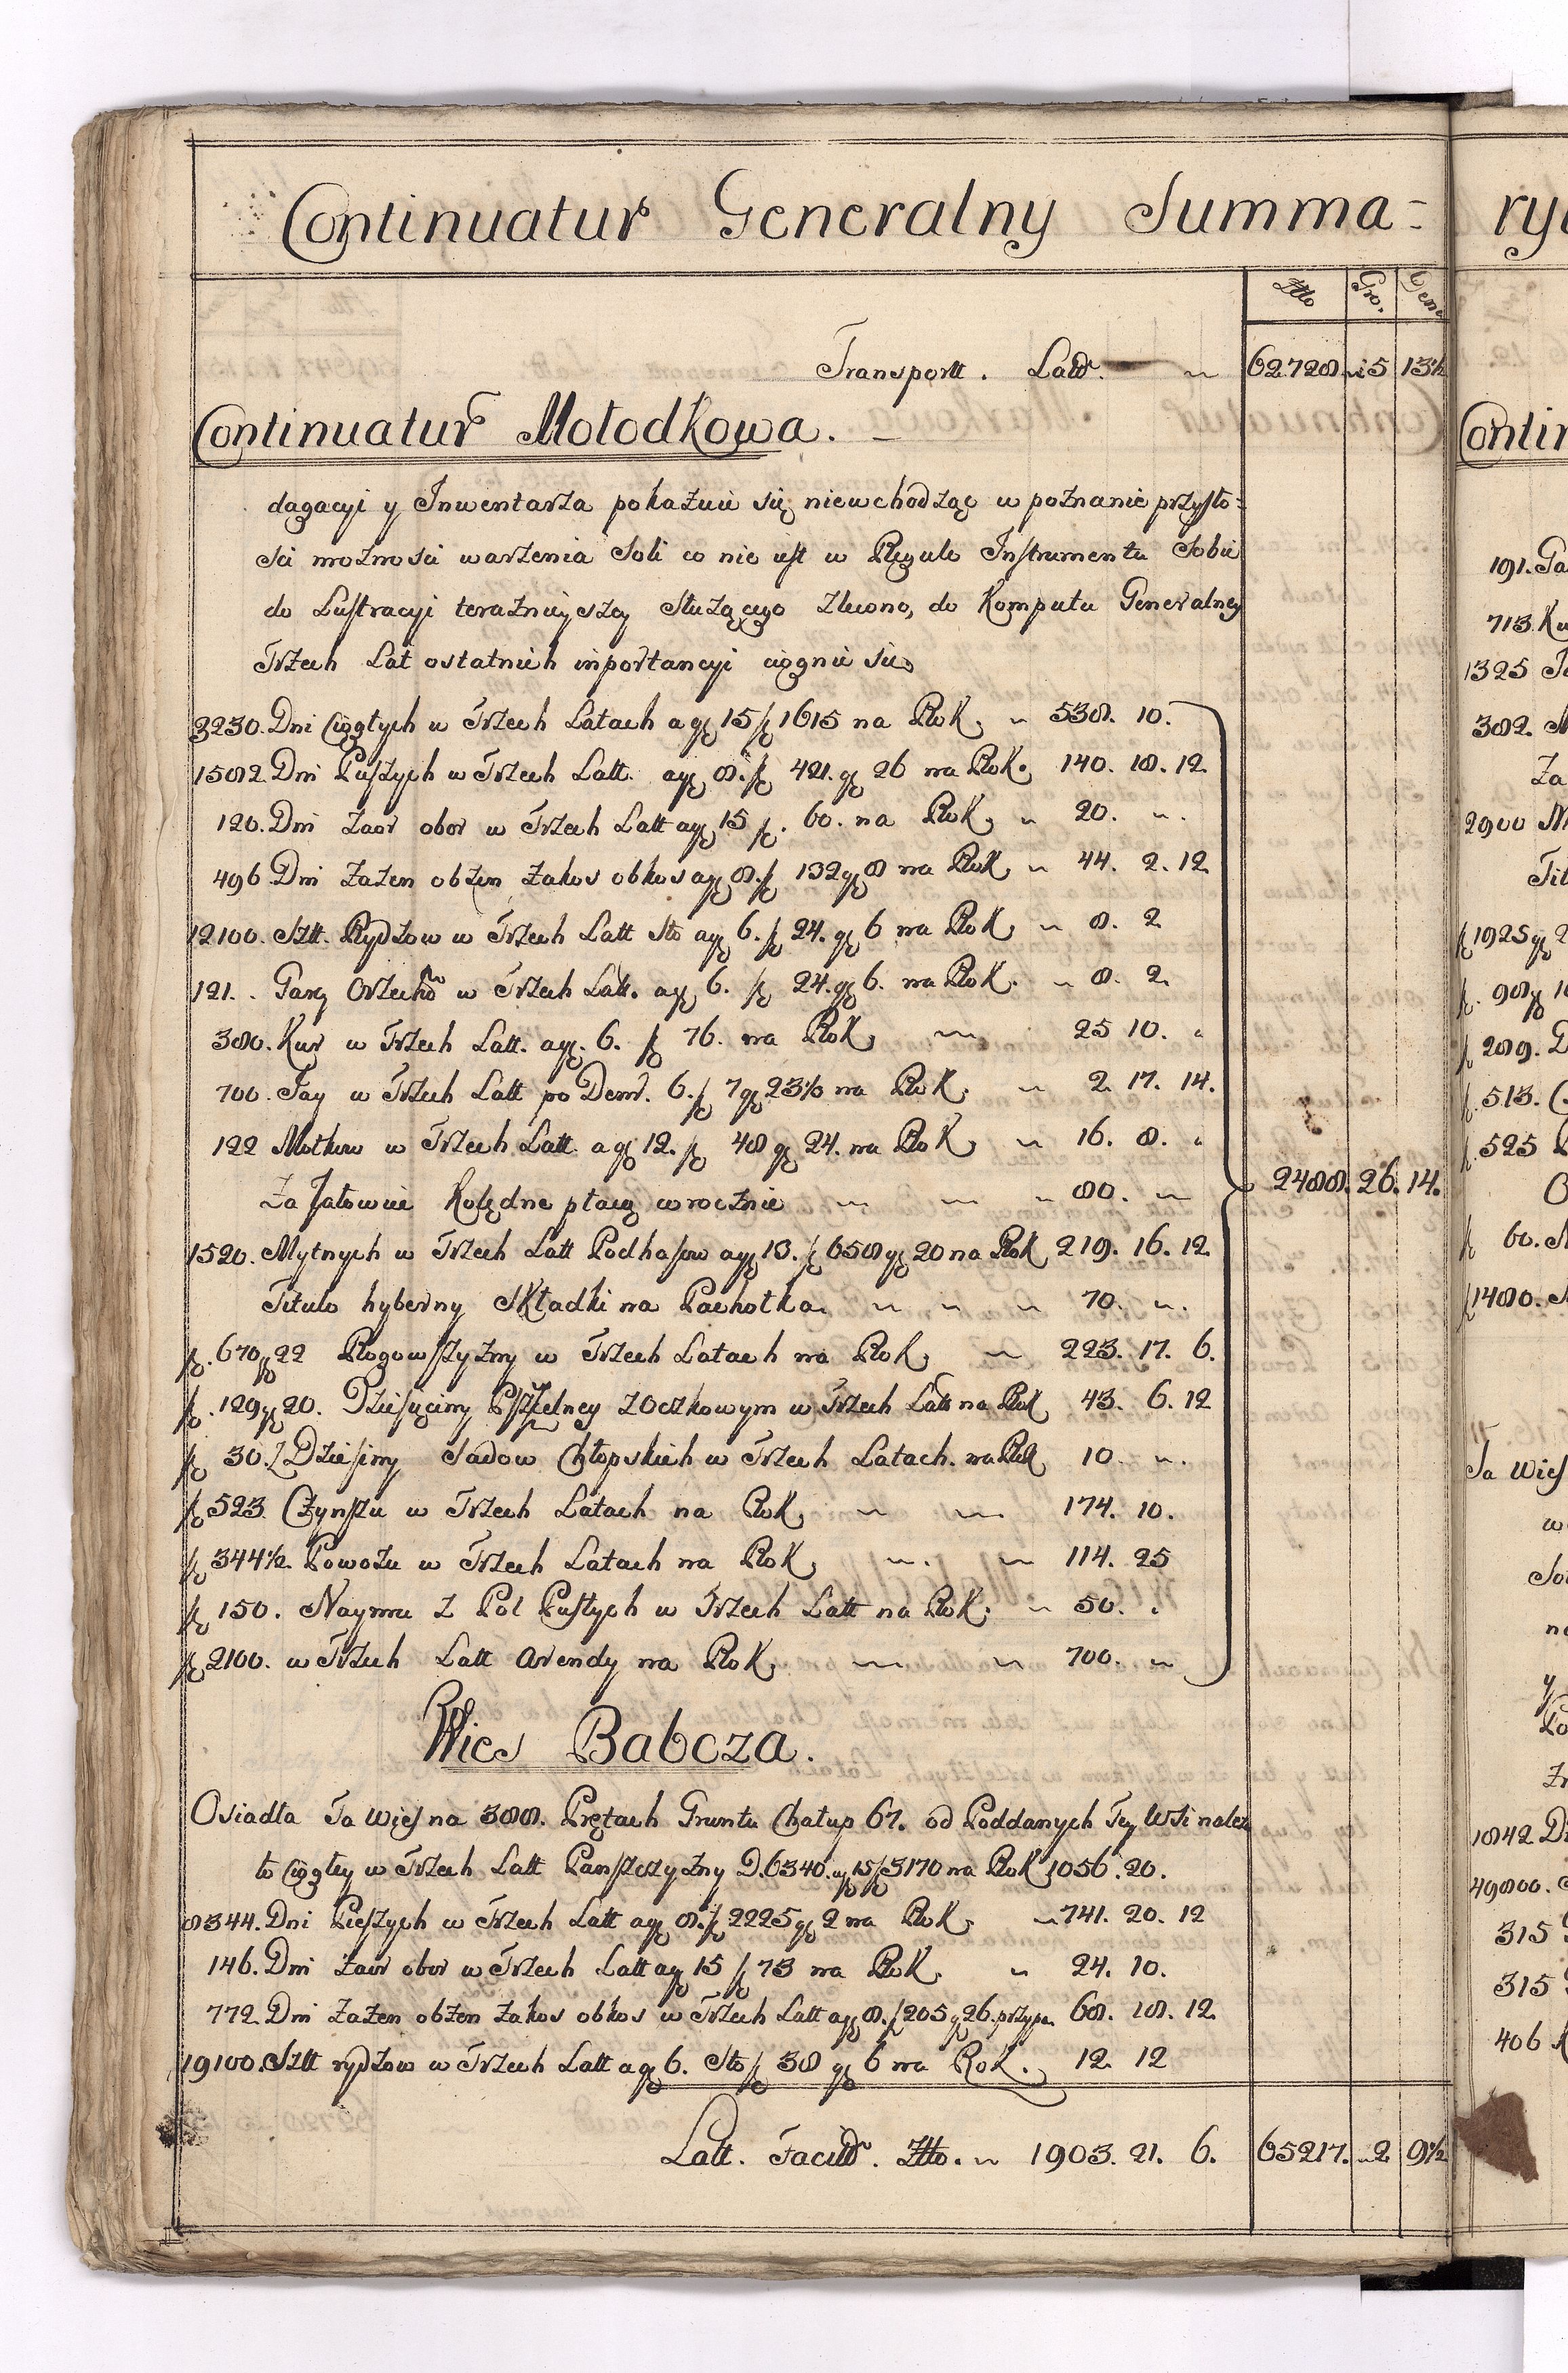 Continuatur Generalny Summa=
Złto Gro. Dena
Transportt. Latt. 62728. 15 13½
Continuatur Mołodkowa.
dagacyi y Inwentarza pokazuie się niewchodząc w poznanie przysto=
sci moznosci warzenia Soli co nie iest w Regule Instrumentu Sobie
do Lustracyi teraznieyszey słuzącego zlecono, do Komputu Generalney
Trzech Lat ostatnich importancyi ciągnie się
3230. Dni Ciągłych w Trzech Latach a gr 15 f 1615 na Rok 538. 10.
1582. Dni Pieszych w Trzech Latt. a gr 8. f 421. gr 26 na Rok. 140. 18. 12.
120. Dni zaor obor w Trzech Latt a gr 15 f. 60. na Rok 20.
496 Dni zazen obzen zakos obkos a gr 8. f 132 gr 8 na Rok 44. 2. 12
12100. Sztt. Rydzow w Trzech Latt Sto a gr 6. f 24. gr 6 na Rok 8. 2
121. Garcy Orzechow w Trzech Latt. a gr 6. f 24. gr 6. na Rok. 8. 2.
380. Kur w Trzech Latt. a gr. 6. f 76. na Rok 25 10.
700. Jay w Trzech Latt po Denr. 6. f 7 gr 23⅓ na Rok. 2. 17. 14.
122 Motkow w Trzech Latt. a gr 12. f 48 gr 24. na Rok 16. 8.
Za Jałowice Kolędne płacą corocznie 80. 2488. 26. 14.
1520. Mytnych w Trzech Latt Podhasow a gr 13. f 658 gr 20 na Rok 219. 16. 12.
Titulo hyberny Składki na Pachołka 70.
f. 670 gr 22 Rogowszyzny w Trzech Latach na Rok 223. 17. 6.
f. 129 gr 20. Dziesięciny Pszczelney z Oczkowym w Trzech Latt na Rok 43. 6. 12
f 30. z Dziesiny Sadow Chłopskich w Trzech Latach. na Rok 10.
f 523. Czynszu w Trzech Latach na Rok 174. 10.
f 344½. Powozu w Trzech Latach na Rok 114. 25
f 150. Naymu z Pol Pustych w Trzech Latt na Rok. 50.
f 2100. w Trzech Latt Arendy na Rok 700.
Wies Babcza.
Osiadła Ta Wies na 388. Prętach Gruntu Chałup 67. od Poddanych Tey Wsi nalez
to Ciągłey w Trzech Latt Panszczyzny D. 6340. a gr 15 f 3170 na Rok 1056. 20.
8344. Dni Pieszych w Trzech Latt a gr 8. f 2225 gr 2 na Rok. 741. 20. 12
146. Dni zaor obor w Trzech Latt a gr 15 f 73 na Rok. 24. 10.
772. Dni zazen obzen zakos obkos w Trzech Latt a gr 8. f 205 gr 26. przypa. 68. 18. 12.
19100. Sztt rydzow w Trzech Latt a gr 6. Sto f 38 gr 6 na Rok. 12. 12
Latt. Facitt. Złto. 1903. 21. 6. 65217. 2 9½
ry
Contin
191. Ga
713. Ku
1325 Ja
382. M
Za
2900 M
Tit
f 1925 gr 2
f. 98 gr 1
f 289. D
f. 513. C
f. 525
O
f 60. N
f 1480.
Ta Wies
w
So
na
y
Zr
1842 Dn
49800. S
315
315
406